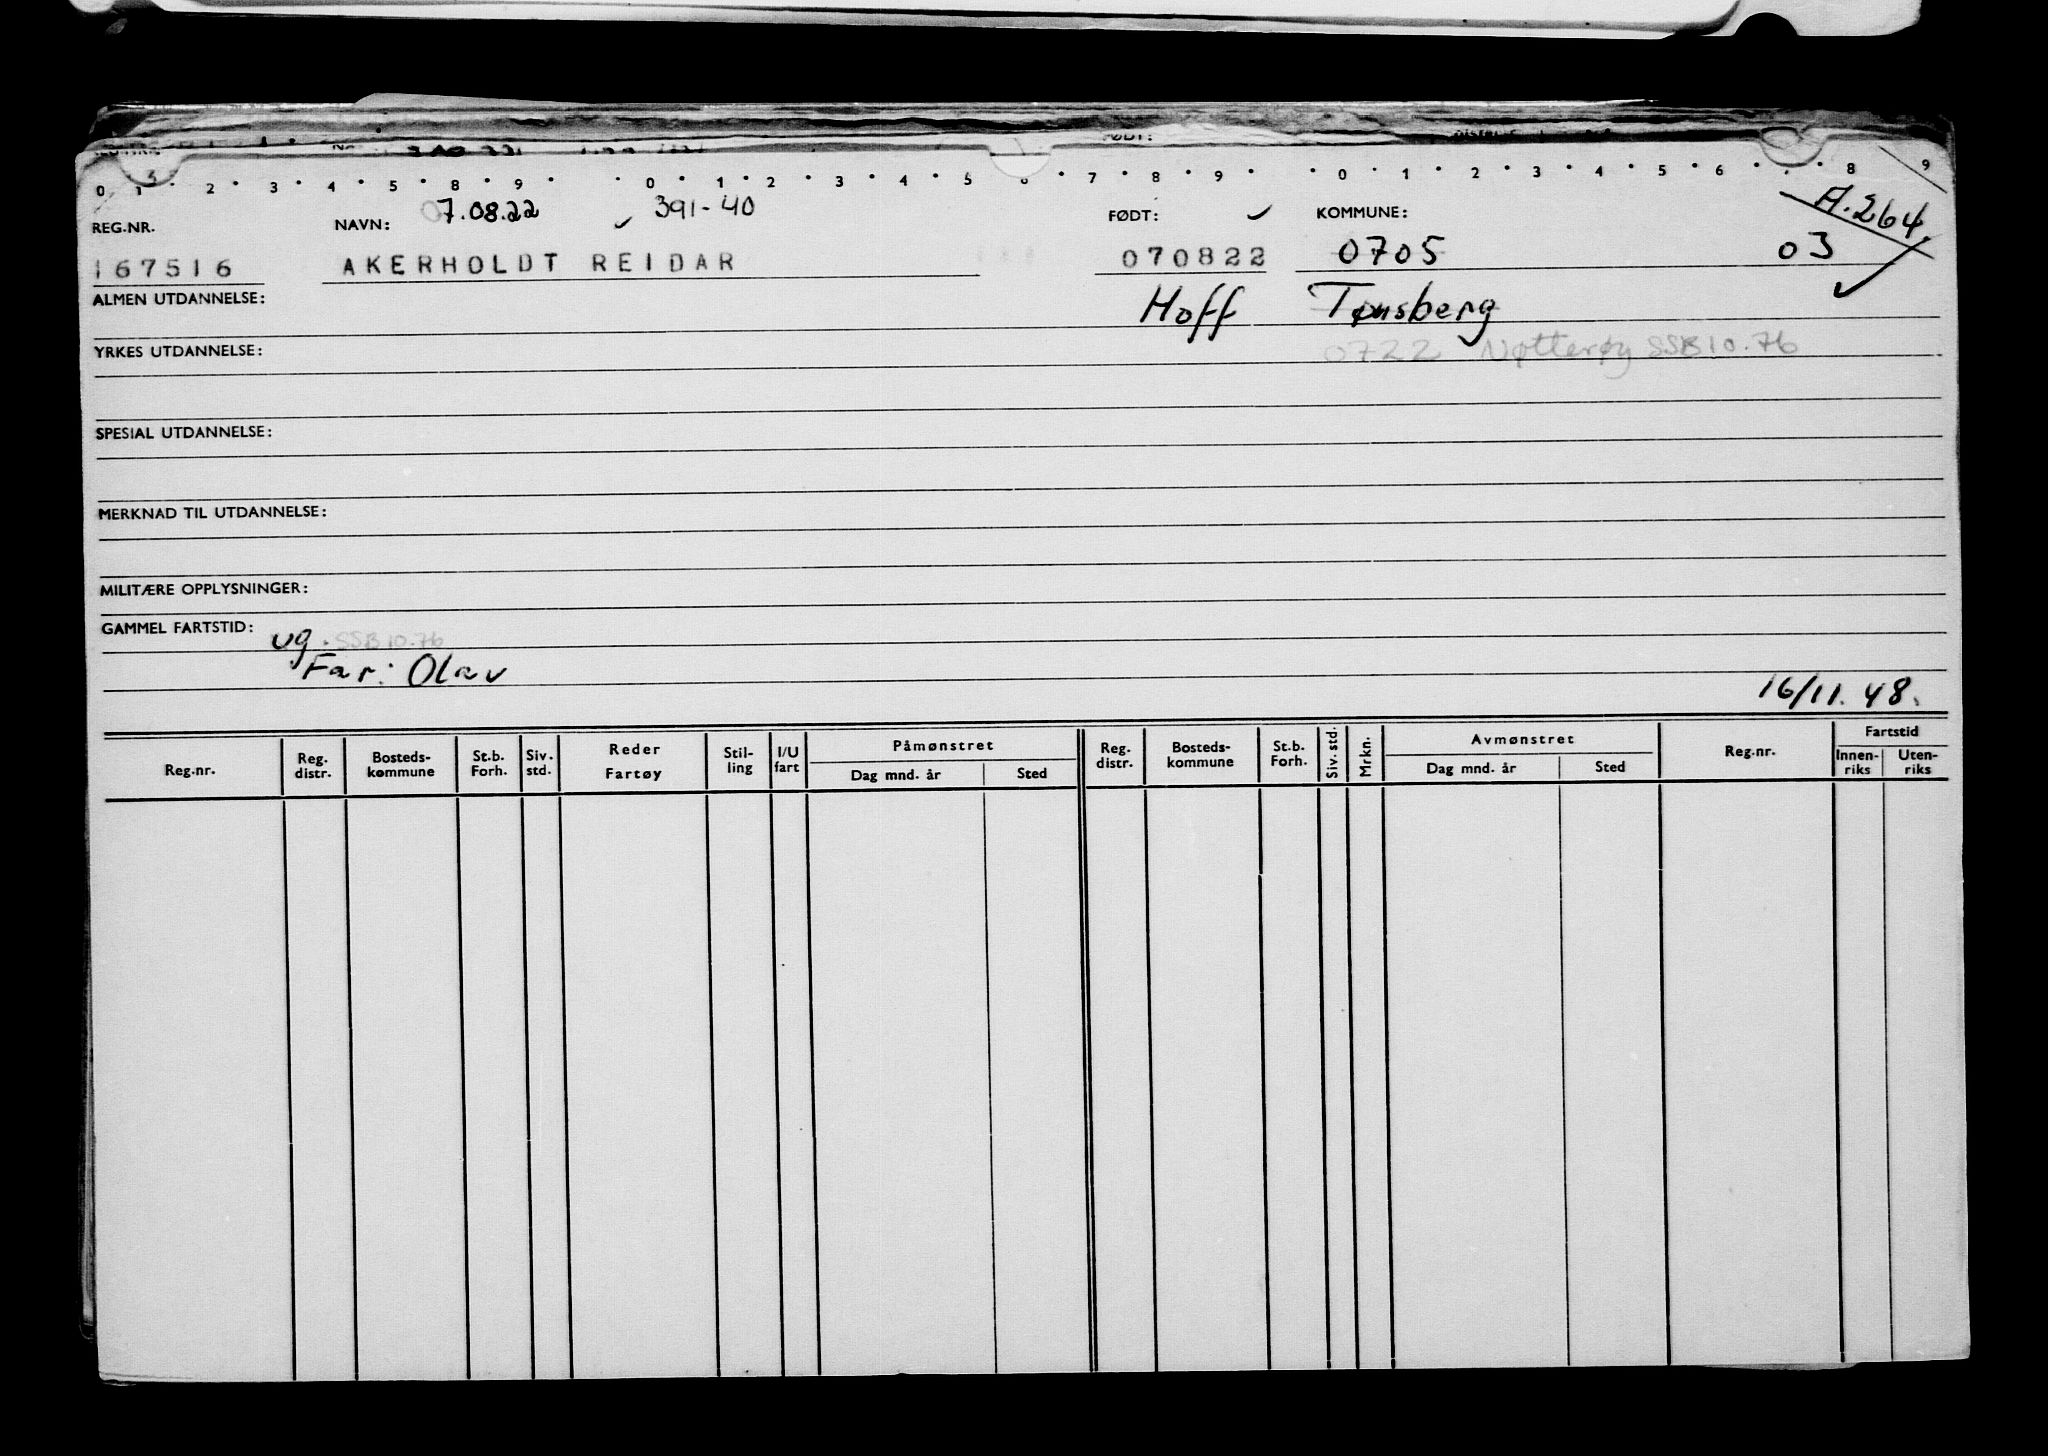 0 1 2 3 4 5 8 9 0 1 2 3 4 5 6 7 8 9 0 1 2 3 4 5 6 8 9
REG.NR. NAVN: 07.08.22 391-40 FØDT: KOMMUNE: A.264.
167516 AKERHOLDT REIDAR 070822 0705 03
ALMEN UTDANNELSE: Hoff Tønsberg
YRKES UTDANNELSE: 0722 Nøtterøy SSB 10.76
SPESIAL UTDANNELSE:
MERKNAD TIL UTDANNELSE:
MILITÆRE OPPLYSNINGER:
GAMMEL FARTSTID: ug. SSB 10.76
Far: Olav
16/11.48.
Reg.nr. Reg. distr. Bosteds-kommune St.b. Forh. Siv. std. Reder Fartøy Stil-ling I/U fart Påmønstret Dag mnd. år Sted Reg. distr. Bosteds-kommune St.b. Forh. Siv. std. Mrkn. Avmønstret Dag mnd. år Sted Reg.nr. Fartstid Innen-riks Uten-riks